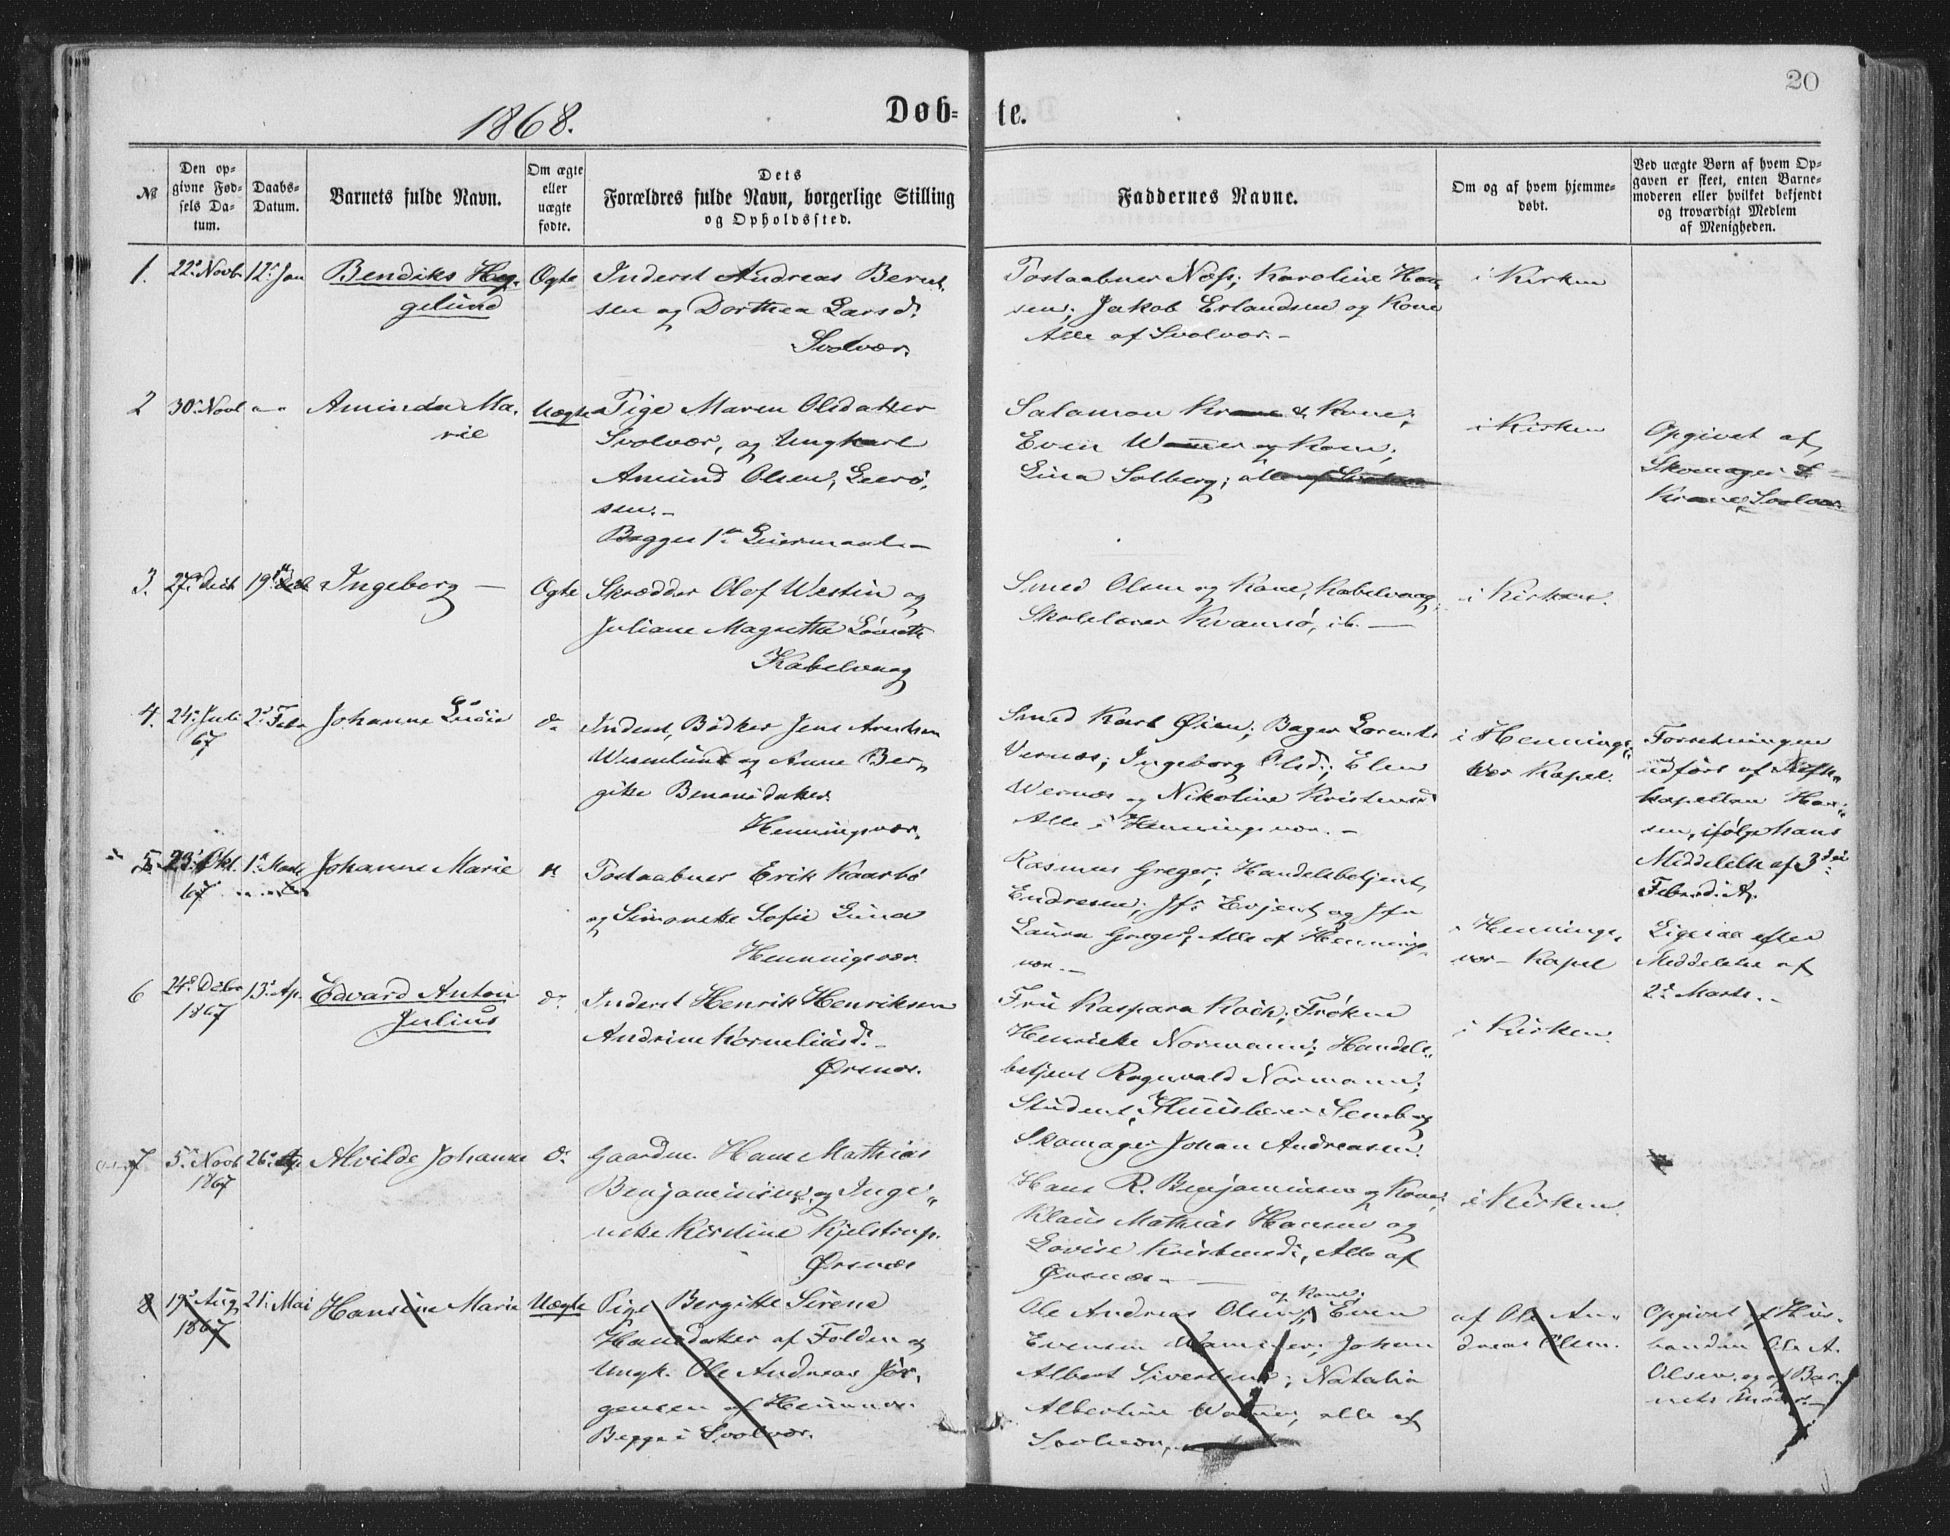 20
1868.
Døb-
te.
№
Den op-
givne Fød-
sels Da-
tum.
Daabs-
Datum.
Barnets fulde Navn.
Om ægte
eller
uægte
fødte.
Dets
Forældres fulde Navn, borgerlige Stilling
og Opholdssted.
Faddernes Navne.
Om og af hvem hjemme-
døbt.
Ved uægte Børn af hvem Op-
gaven er skeet, enten Barne-
moderen eller hvilket bekjendt
og troværdigt Medlem
af Menigheden.
1. 22d Novb 12te Jan
Bendiks Heg-
gelund
Ægte
Inderst Andreas Bernt-
sen og Dorthea Larsd.
Svolvær.
Postaabner Næss; Karoline Han-
sen; Jakob Erlandsen og Kone
Alle af Svolvær.-
i Kirken
2 30te Novb
Aminda Ma-
rie
Uægte
Pige Maren Olsdatter
Svolvær, og Ungkarl
Amund Olsen,
Begges 1ste Leiermaal.-
Salamon Krane & Kone;
Even Wanner og Kone;
Lina Solberg; alle af Svolvær
i Kirken
Opgivet af
Skomager S.
Krane, Svolvær
3. 27de Decb 19de
Ingeborg —
Ægte
Skrædder Olof Westin og
Juliane Magretha
Kabelvaag
Smed Olsen og Kone, Kabelvaag,
Skolelærer Kvamsø, ib. —
i Kirken.
4. 24de Juli
67
2d Feb
Johanne Lucie
do
Inderst, Bødker Jens Arentsen
Wesenlund og Anne Ber-
gitte Benonidatter.
Henningsvær.
Smed Karl Øien; Bager Lorents
Vernæs; Ingeborg Olsd.; Elen
Wernæs og Nikoline Kristensd
Alle i Henningsvær.-
i Hennings-
vær Kapel.
Forretningen
udført af
kapellan Han-
sen, ifølge hans
Middelelse af 3die
Febr. d. A.
5. 23d Okt.
67
1ste Marts
Johanne Marie
Postaabner Erik Kaarbø
og Simonette Sofie Lund
Henningsvær.
Rasmus Greger; Handelsbetjent
Endresen; Jfr Evjent og Jfr
Laura Greger, Alle af Hennings-
vær.-
i Hennings-
vær- Kapel
Ligesaa efter
Meddelelse af
2d Marts.-
6 24d Decbr
1867
13de Ap.
Edvard Anton
Julius
do
Inderst Henrik Henriksen
Andrine Korneliusd.-
Ørsnæs.
Fru Kaspara Koch; Frøken
Henriette Normann; Handels-
betjent Rognvald Normann;
Student, Huuslærer og
Skomager Johan Andreasen.
i Kirken.
7 5te Novb
1867
26de Ap
Alvilde Johanne
do
Gaardm. Hans Mathias
Benjaminsen og Inge-
Kirstine Kjelstrup.
Ørsnæs
Hans R. Benjaminsen og Kone;
Klaus Mathias Hansen og
Lovise Kristensd., Alle af
Ørsnæs.-
i Kirken.
8 19de Aug
1867
21d Mai
Hansine Marie
Uægte
Pige Bergitte Sirene
Hansdatter af Folden og
Ungk. Ole Andreas Jør-
gensen af
Begge i Svolvær.
og Kone;
Ole Andreas Olsen; Even
Evensen Wanner; Johan
Albert Sivertsen; Natalia
Albertine Wanner, alle af
Svolvær,
af Ole An-
dreas Olsen.
Opgivet af Hus-
bonden Ole A.
Olsen og af Bar-
nets Moder.-